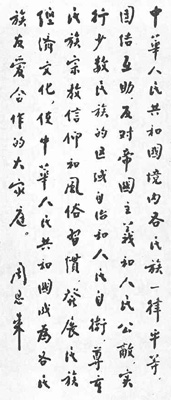 中華人民共和國境内各民族一律平等，
團结互助，反对帝國主義和人民公敵，实
行少数民族的区域自治和人民自衛，尊重
民族宗教信仰和風俗習慣，發展民族
經濟文化，使中華人民共和國成為各民
族友愛合作的大家庭。 周恩来